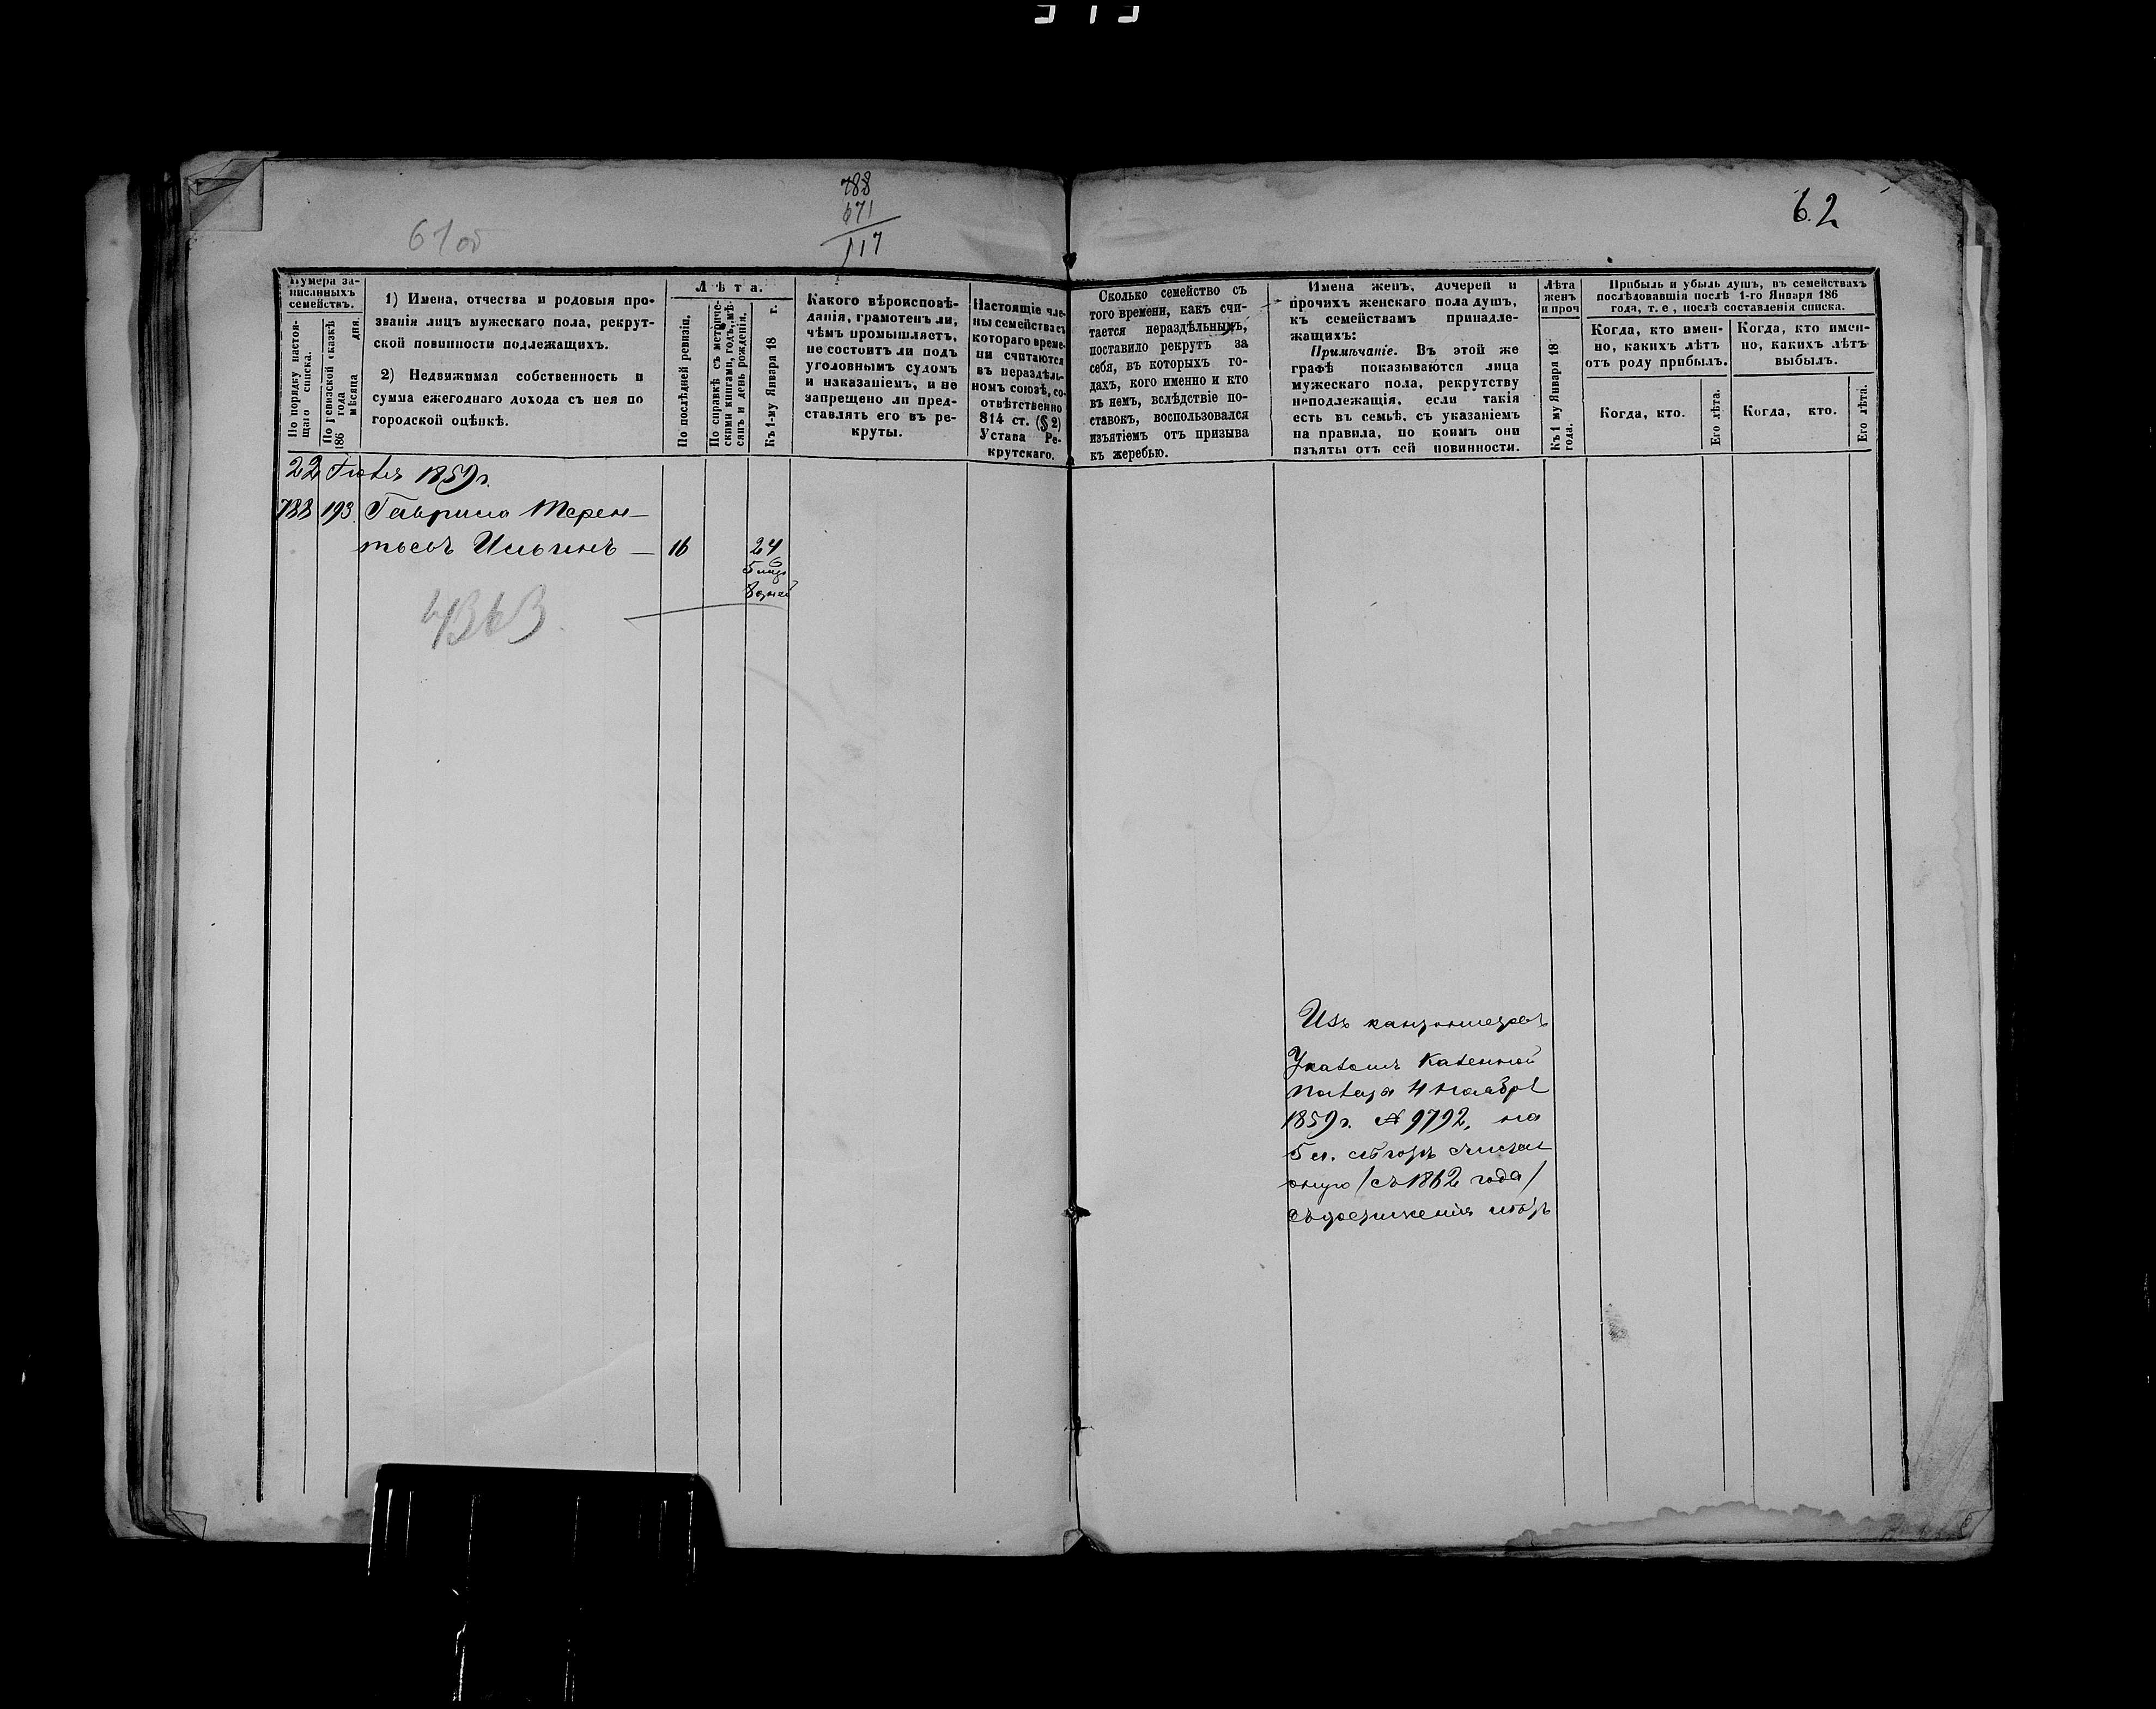 788
671
117
61об
62
Нумера за-
писанныхъ
семействъ.
По порядку настоя-
щаго списка.
По ревизской сказкѣ
186 года
мѣсяца дня.
1) Имена, отчества и родовыя про-
званія лицъ мужескаго пола, рекрут-
ской повинности подлежащихъ.
2) Недвижимая собственность и
сумма ежегоднаго дохода съ нея по
городской оцѣнкѣ.
Лѣта.
По послѣдней ревизіи.
По справкѣ съ метриче-
скими книгами, годъ, мѣ-
сяцъ и день рожденія.
Къ 1-му Января 18 г.
Какого вѣроисповѣ-
данія, грамотенъ ли,
чѣмъ промышляетъ,
не состоитъ ли подъ
уголовнымъ судомъ
и наказаніемъ, и не
запрещено ли пред-
ставлять его въ ре-
круты.
Настоящіе чле-
ны семейства съ
котораго време-
ни считаются
въ нераздѣль-
номъ союзѣ, со-
отвѣтственно
814 ст. (§ 2)
Устава Ре-
крутскаго.
Сколько семейство съ
того времени, какъ счи-
тается нераздѣльнымъ,
поставило рекрутъ за
себя, въ которыхъ го-
дахъ, кого именно и кто
въ немъ, вслѣдствіе по-
ставокъ, воспользовался
изъятіемъ отъ призыва
къ жеребью.
Имена женъ, дочерей и
прочихъ женскаго пола душъ,
къ семействамъ принадле-
жащихъ:
Примѣчаніе. Въ этой же
графѣ показываются лица
мужескаго пола, рекрутству
неподлежащія, если такія
есть въ семьѣ, съ указаніемъ
на правила, по коимъ они
изъяты отъ сей повинности.
Лѣта
женъ
и проч
Къ 1 му Января 18
года.
Прибыль и убыль душъ, въ семействахъ
послѣдовавшія послѣ 1-го Января 186
года, т. е, послѣ составленія списка.
Когда, кто имен-
но, какихъ лѣтъ
отъ роду прибылъ.
Когда, кто имен-
но, какихъ лѣтъ
выбылъ.
Когда, кто.
Его лѣта.
Когда, кто.
Его лѣта.
22 Іюля 1859г.
788 193 Гаврила Терен-
тьевъ Ильинъ — 16 24
5 мѣс
8 дней
Изъ кантонистовъ
Указомъ Казенной
Палаты 4 Ноября
1859г. № 9792, на
5 л. считая
(съ 1862 года)
съ достиженія